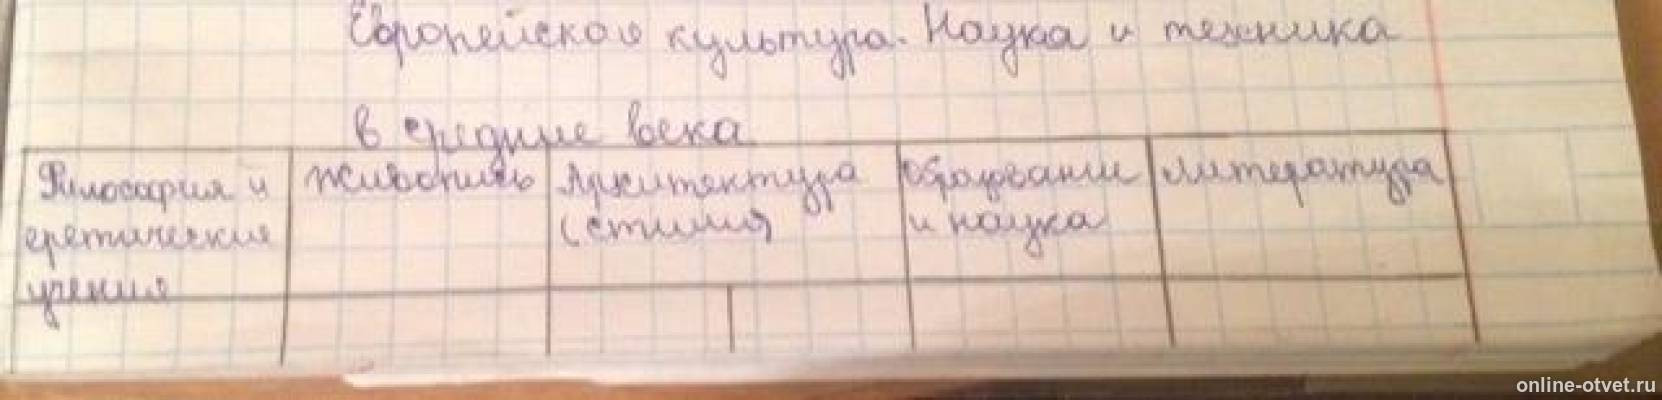 Европейская культура. Наука и техника
в средние века
Философия и
еретические
учения
живопись
Архитектура
(стили)
Образование
и наука
литература
online-otvet.ru